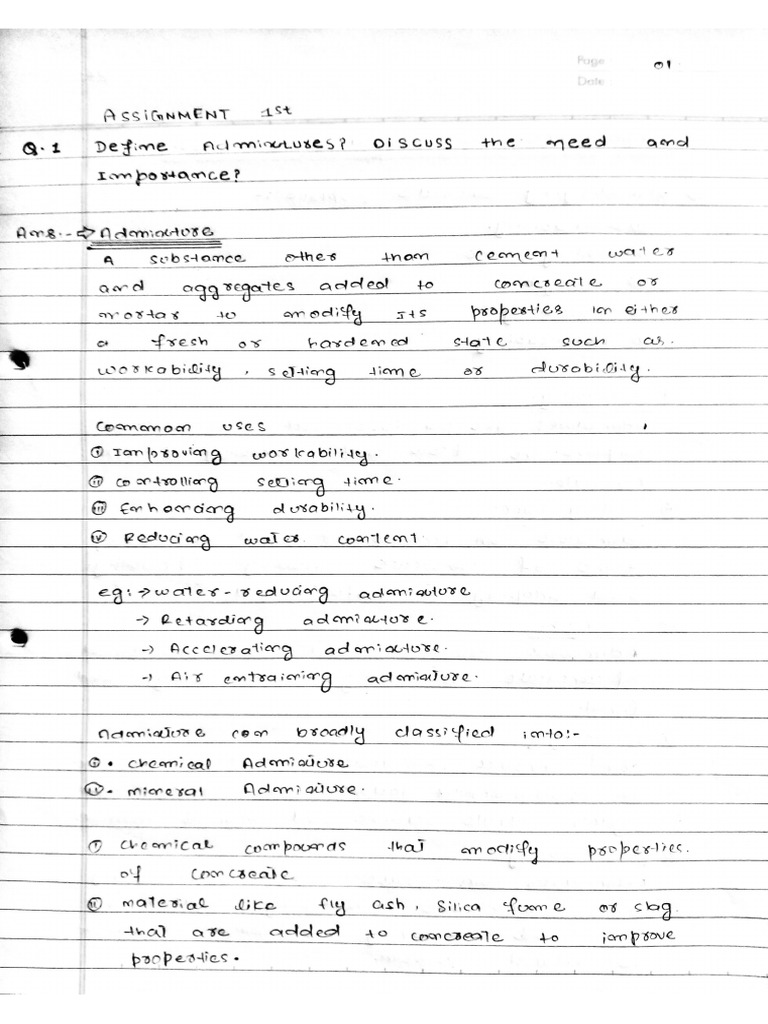 Page 01
Date
ASSIGNMENT 1st
Q.1 Define Admixtures? Discuss the need and
Importance?
Ans:- ⇒ Admixture
A substance other than cement water
and aggregates added to concreate or
mortar to modify Its properties in either
a fresh or hardened state such as.
workability, setting time or durability.
Common uses
(i) Improving workability.
(ii) controlling setting time.
(iii) Enhancing durability.
(iv) Reducing water content
eg:→ water-reducing admixture
→ Retarding admixture.
→ Accelerating admixture.
→ Air entraining admixture.
Admixture can broadly classified into:-
(i) • chemical Admixture
(ii) • mineral Admixture.
(i) chemical compounds that modify properties.
of concreate
(ii) material like fly ash, silica fume or slag
that are added to concreate to improve
properties.